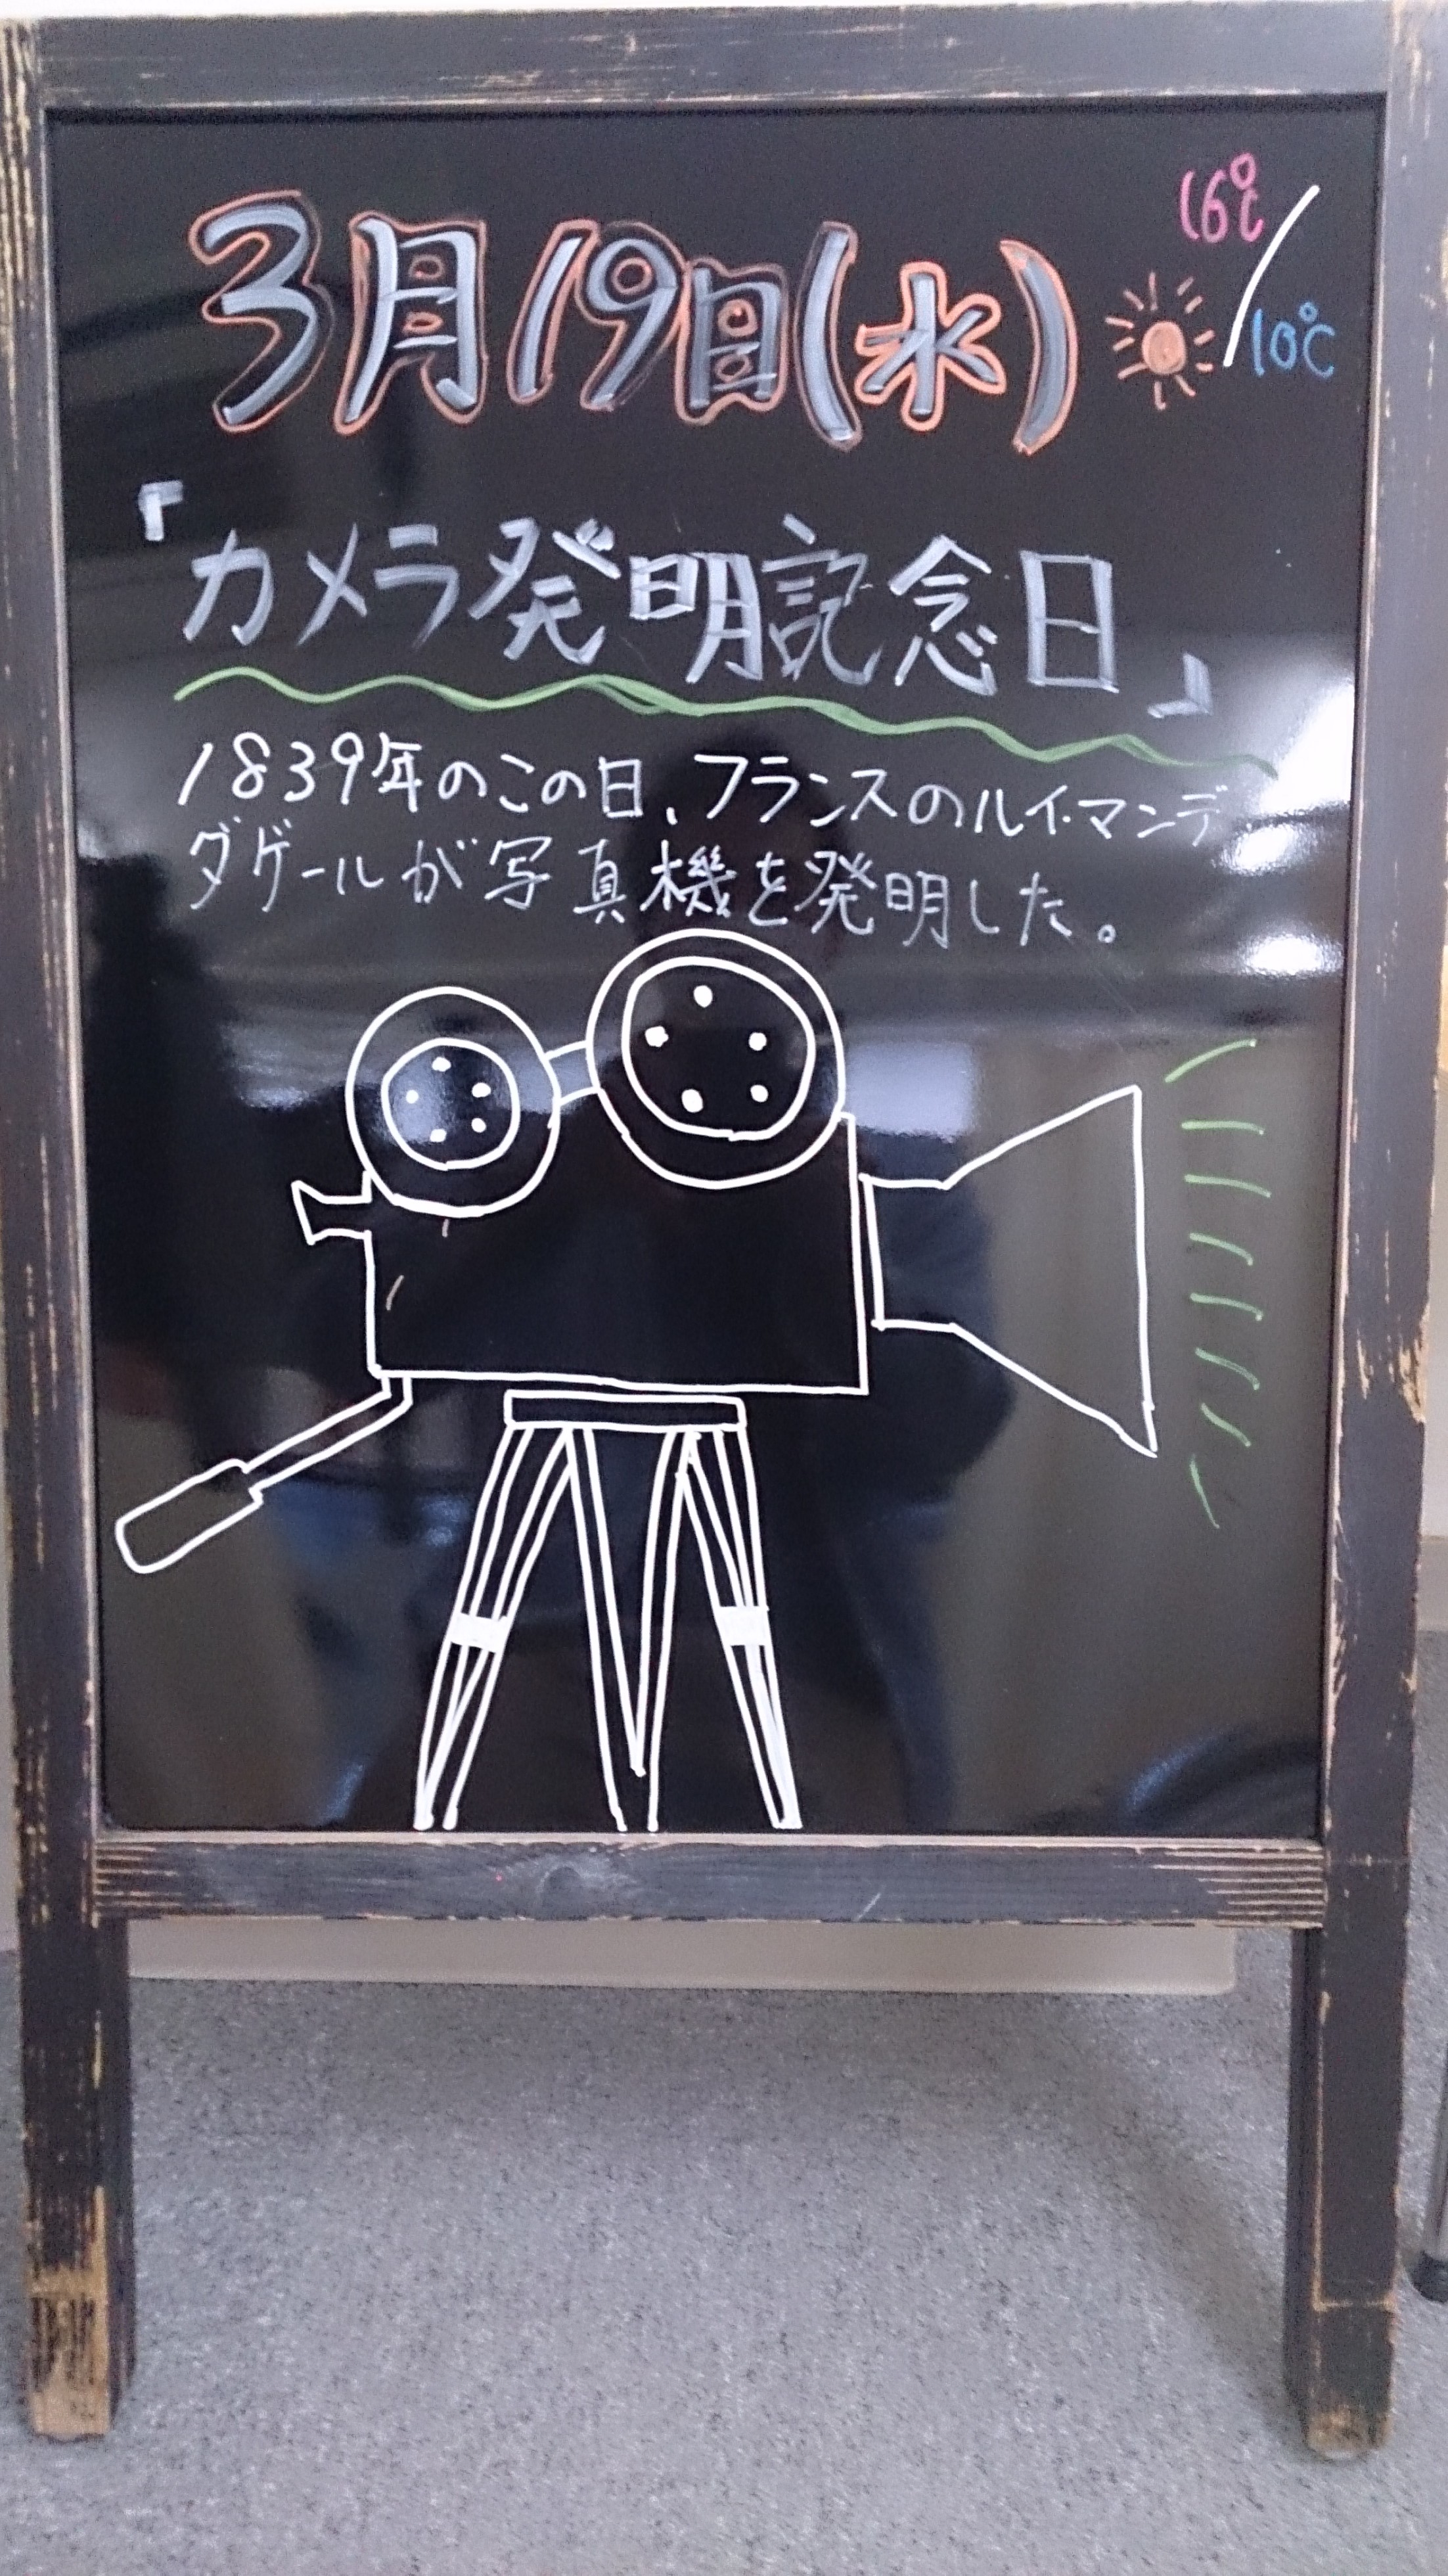 3月19日(水)
16℃/10℃
『カメラ発明記念日』
1839年のこの日、フランスのルイ・マンデ
ダゲールが写真機を発明した。